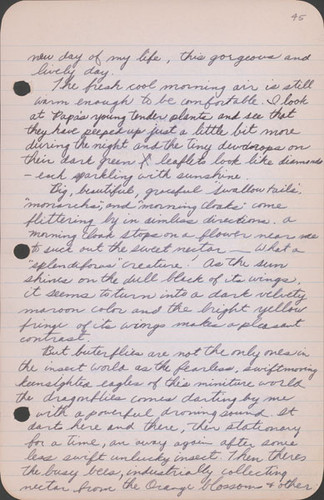 45
new day of my life, this gorgeous and
lively day.
The fresh cool morning air is still
warm enough to be comfortable. I look
at Papa's young tender plants and see that
they have peeped up just a little bit more
during the night and the tiny dewdrops on
their dark green leaflets look like diamonds
- each sparkling with sunshine.
Big, beautiful, graceful "swallow tails",
"monarchs", and "morning cloaks" come
flittering by in aimless directions. A
morning cloak stops on a flower near me
to suck out the sweet nectar — What a
"splendiferous" creature! As the sun
shines on the dull black of its wings,
it seems to turn into a dark velvety
maroon color and the bright yellow
fringe of its wings makes a pleasant
contrast.
But buterflies are not the only ones in
the insect world as the fearless, swiftmoving
keensighted eagles of this miniture world
the dragonflies comes darting by me
with a powerful droning sound. It
darts here and there, then stationary
for a time, an away again after some
less swift unlucky insect. Then theres
the busy bees, industrially collecting
nectar from the Orange blossoms & other